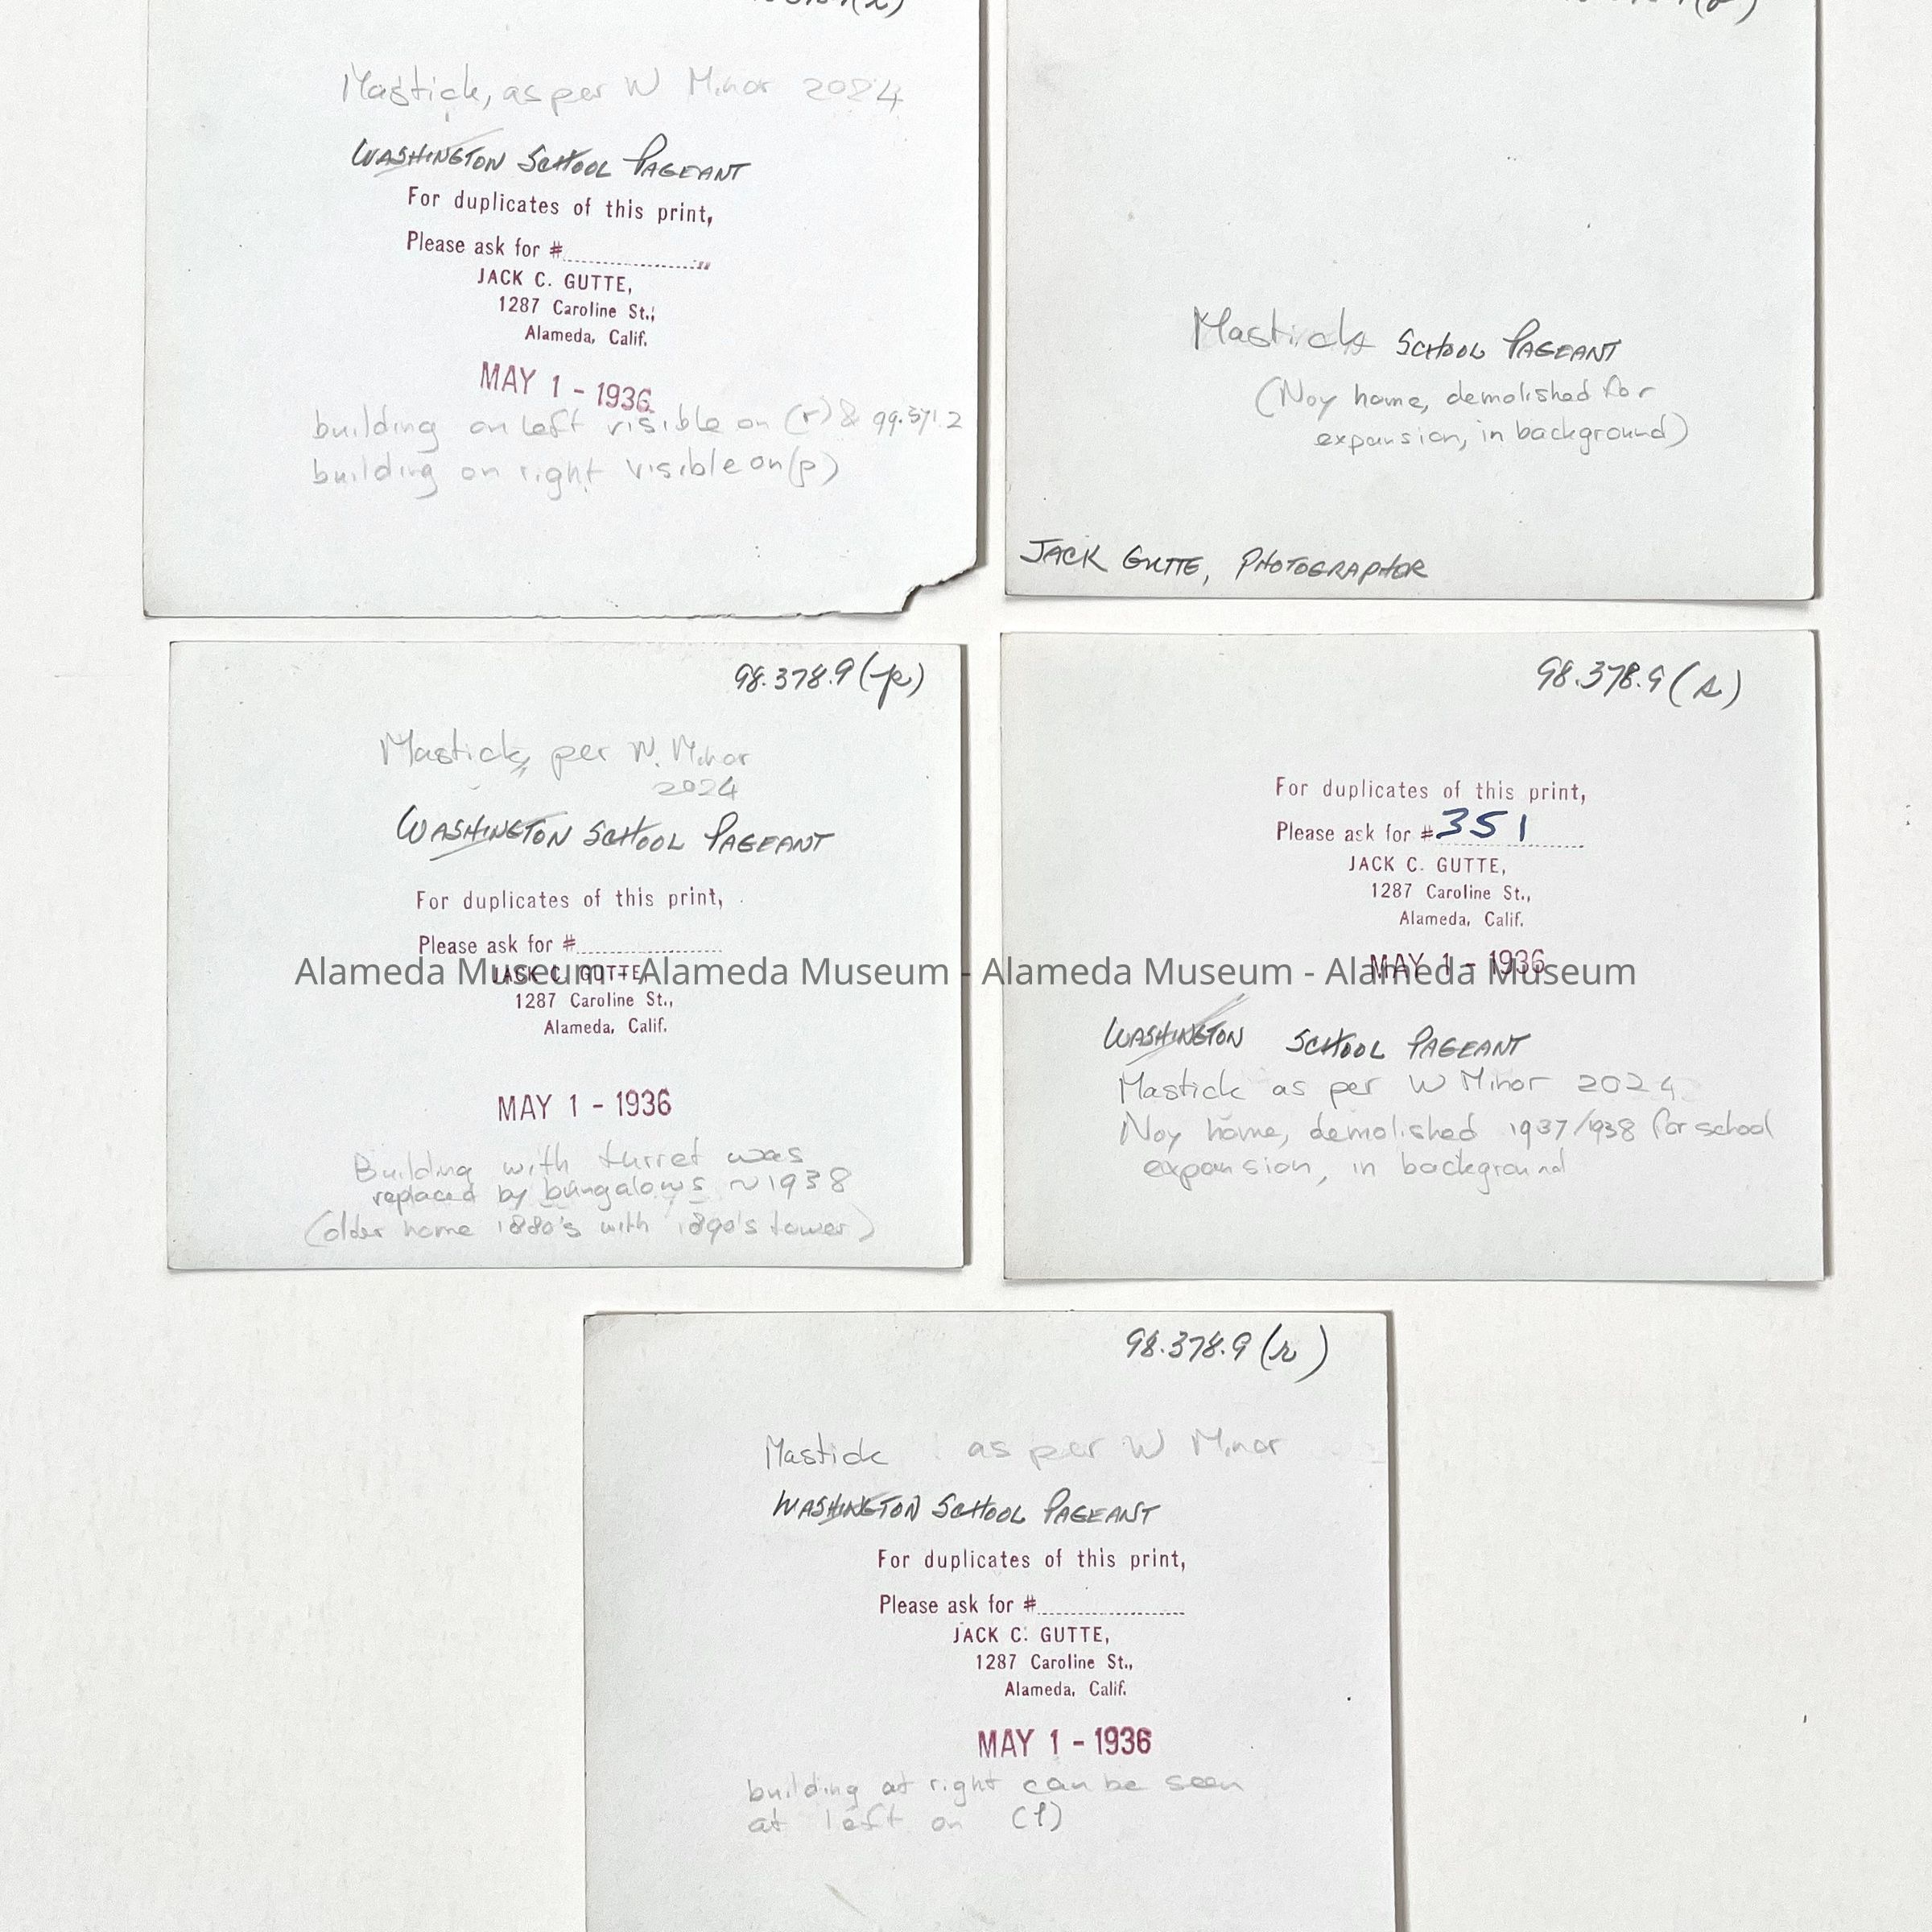 Mastick, as per W Minor 2024
WASHINGTON SCHOOL PAGEANT
For duplicates of this print,
Please ask for #
JACK C. GUTTE,
1287 Caroline St.,
Alameda, Calif.
MAY 1 - 1936
building on left visible on (r) & 99.371.2
building on right visible on (p)
Mastick SCHOOL PAGEANT
(Noy home, demolished for
expansion, in background)
JACK GUTTE, PHOTOGRAPHER
98.378.9 (p)
Mastick, per W. Minor
2024
WASHINGTON SCHOOL PAGEANT
For duplicates of this print,
Please ask for #
JACK C. GUTTE,
1287 Caroline St.,
Alameda, Calif.
MAY 1 - 1936
Building with turret was
replaced by bungalows ~1938
(older home 1880's with 1890's tower)
98.378.9 (s)
For duplicates of this print,
Please ask for #351
JACK C. GUTTE,
1287 Caroline St.,
Alameda, Calif.
MAY 1 - 1936
WASHINGTON SCHOOL PAGEANT
Mastick as per W Minor 2024
Noy home, demolished 1937/1938 for school
expansion, in background
Alameda Museum - Alameda Museum - Alameda Museum - Alameda Museum
98.378.9 (r)
Mastick as per W Minor
WASHINGTON SCHOOL PAGEANT
For duplicates of this print,
Please ask for #
JACK C. GUTTE,
1287 Caroline St.,
Alameda, Calif.
MAY 1 - 1936
building at right can be seen
at left on